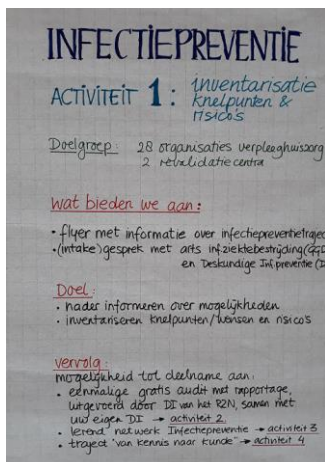 INFECTIEPREVENTIE
ACTIVITEIT 1: inventarisatie
knelpunten &
risico's
Doelgroep: 28 organisaties verpleeghuiszorg
2 revalidatiecentra
Wat bieden we aan:
• flyer met informatie over infectiepreventietraject
• (intake)gesprek met arts inf.ziektebestrijding (GGD
en Deskundige Inf.preventie (D
Doel:
• nader informeren over mogelijkheden
• inventariseren knelpunten/wensen en risico's
Vervolg:
mogelijkheid tot deelname aan:
• eenmalige gratis audit met rapportage,
uitgevoerd door DI van het RZN, samen met
uw eigen DI → activiteit 2.
• lerend netwerk Infectiepreventie → activiteit 3
• traject "van kennis naar kunde" → activiteit 4